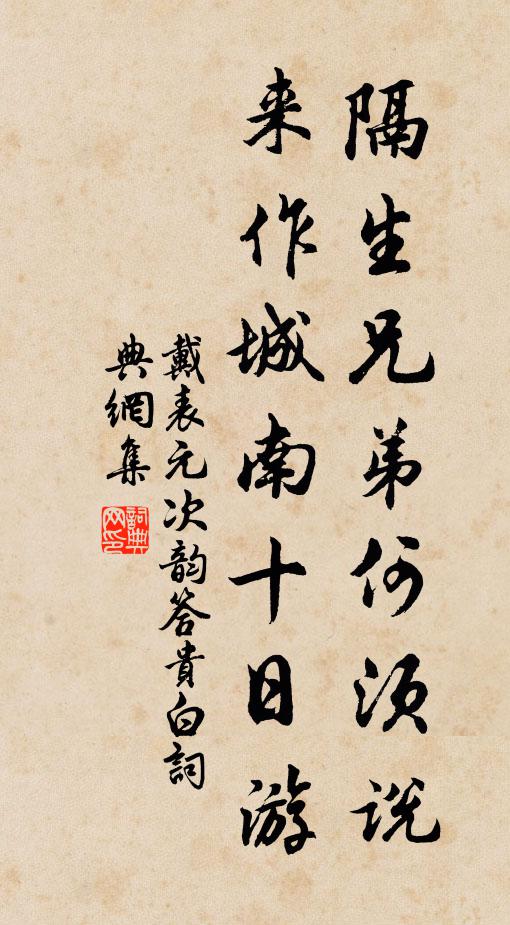 隔生兄弟何须说
来作城南十日游
戴表元次韵答貴白詞
典網集
詞典网印